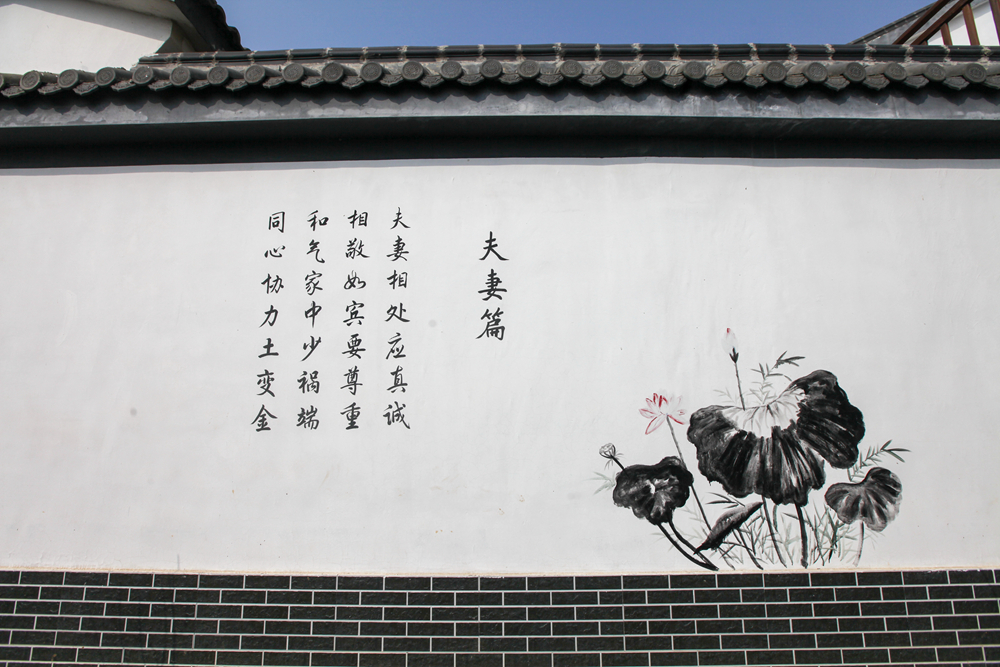 夫妻篇
夫妻相处应真诚
相敬如宾要尊重
和气家中少祸端
同心协力土变金